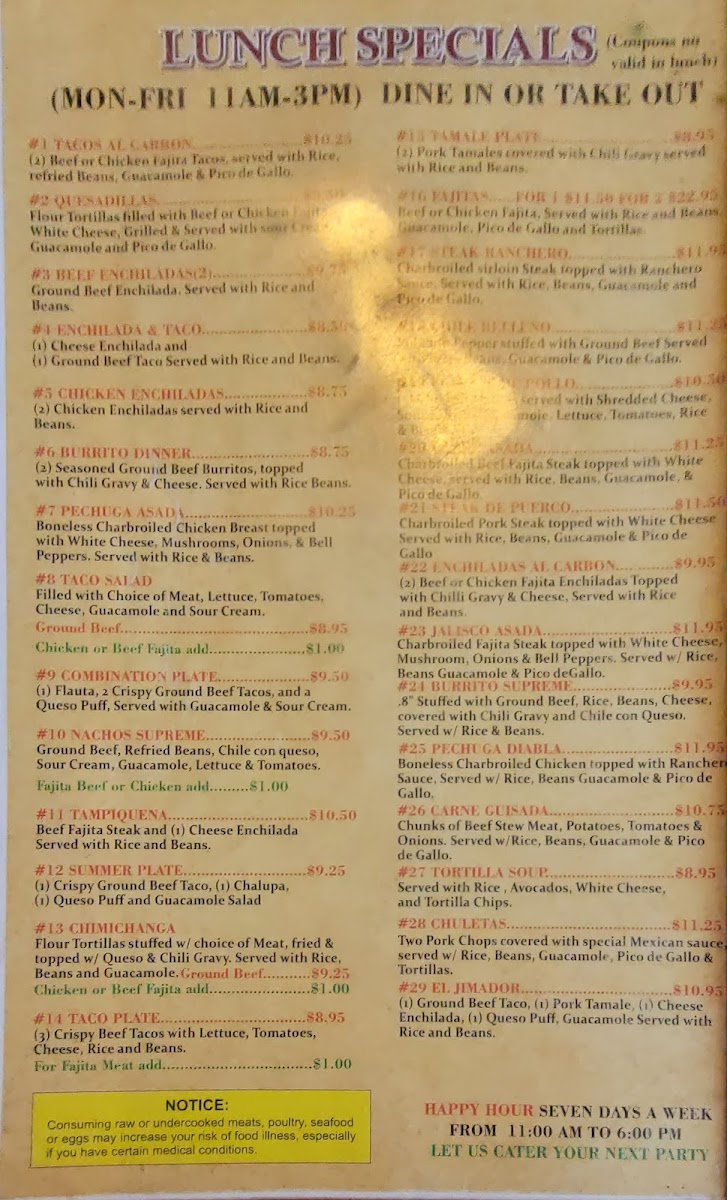 LUNCH SPECIALS
(Coupons no
valid in lunch)
(MON-FRI 11AM-3PM) DINE IN OR TAKE OUT
#1 TACOS AL CARBON..................$10.25
(2) Beef or Chicken Fajita Tacos, served with Rice,
refried Beans, Guacamole & Pico de Gallo.
#2 QUESADILLAS
Flour Tortillas filled with Beef or Chicken
White Cheese, Grilled & Served with sour
Guacamole and Pico de Gallo.
#3 BEEF ENCHILADAS(2)..................$9.75
Ground Beef Enchilada. Served with Rice and
Beans.
#4 ENCHILADA & TACO..................$8.50
(1) Cheese Enchilada and
(1) Ground Beef Taco Served with Rice and Beans.
#5 CHICKEN ENCHILADAS..................$8.75
(2) Chicken Enchiladas served with Rice and
Beans.
#6 BURRITO DINNER..................$8.75
(2) Seasoned Ground Beef Burritos, topped
with Chili Gravy & Cheese. Served with Rice Beans.
#7 PECHUGA ASADA..................$10.25
Boneless Charbroiled Chicken Breast topped
with White Cheese, Mushrooms, Onions, & Bell
Peppers. Served with Rice & Beans.
#8 TACO SALAD
Filled with Choice of Meat, Lettuce, Tomatoes,
Cheese, Guacamole and Sour Cream.
Ground Beef..................$8.95
Chicken or Beef Fajita add..................$1.00
#9 COMBINATION PLATE..................$9.50
(1) Flauta, 2 Crispy Ground Beef Tacos, and a
Queso Puff, Served with Guacamole & Sour Cream.
#10 NACHOS SUPREME..................$9.50
Ground Beef, Refried Beans, Chile con queso,
Sour Cream, Guacamole, Lettuce & Tomatoes.
Fajita Beef or Chicken add.........$1.00
#11 TAMPIQUENA..................$10.50
Beef Fajita Steak and (1) Cheese Enchilada
Served with Rice and Beans.
#12 SUMMER PLATE..................$9.25
(1) Crispy Ground Beef Taco, (1) Chalupa,
(1) Queso Puff and Guacamole Salad
#13 CHIMICHANGA
Flour Tortillas stuffed w/ choice of Meat, fried &
topped w/ Queso & Chili Gravy. Served with Rice,
Beans and Guacamole. Ground Beef..........$9.25
Chicken or Beef Fajita add..................$1.00
#14 TACO PLATE..................$8.95
(3) Crispy Beef Tacos with Lettuce, Tomatoes,
Cheese, Rice and Beans.
For Fajita Meat add..................$1.00
NOTICE:
Consuming raw or undercooked meats, poultry, seafood
or eggs may increase your risk of food illness, especially
if you have certain medical conditions.
#15 TAMALE PLATE..................$8.95
(2) Pork Tamales covered with Chili Gravy served
with Rice and Beans.
#16 FAJITAS......FOR 1 $11.50 FOR 2 $22.95
Beef or Chicken Fajita, Served with Rice and Beans
Guacamole, Pico de Gallo and Tortillas.
#17 STEAK RANCHERO..................$11.95
Charbroiled sirloin Steak topped with Ranchero
Sauce, Served with Rice, Beans, Guacamole and
Pico de Gallo.
RELLENO..................
Pepper stuffed with Ground Beef Served
Guacamole & Pico de Gallo.
POLLO..................$10.50
served with Shredded Cheese,
Lettuce, Tomatoes, Rice
&
ASADA..................$11.25
Charbroiled Beef Fajita Steak topped with White
Cheese, served with Rice, Beans, Guacamole, &
Pico de Gallo
#21 STEAK DE PUERCO..................$11.50
Charbroiled Pork Steak topped with White Cheese
Served with Rice, Beans, Guacamole & Pico de
Gallo
#22 ENCHILADAS AL CARBON............$9.95
(2) Beef or Chicken Fajita Enchiladas Topped
with Chilli Gravy & Cheese, Served with Rice
and Beans.
#23 JALISCO ASADA..................$11.95
Charbroiled Fajita Steak topped with White Cheese,
Mushroom, Onions & Bell Peppers. Served w/ Rice,
Beans Guacamole & Pico deGallo.
#24 BURRITO SUPREME..................$9.95
.8" Stuffed with Ground Beef, Rice, Beans, Cheese,
covered with Chili Gravy and Chile con Queso.
Served w/ Rice & Beans.
#25 PECHUGA DIABLA..................$11.95
Boneless Charbroiled Chicken topped with Rancher
Sauce, Served w/ Rice, Beans Guacamole & Pico de
Gallo.
#26 CARNE GUISADA..................$10.75
Chunks of Beef Stew Meat, Potatoes, Tomatoes &
Onions. Served w/Rice, Beans, Guacamole & Pico
de Gallo.
#27 TORTILLA SOUP..................$8.95
Served with Rice , Avocados, White Cheese,
and Tortilla Chips.
#28 CHULETAS..................$11.25
Two Pork Chops covered with special Mexican sauce,
served w/ Rice, Beans, Guacamole, Pico de Gallo &
Tortillas.
#29 EL JIMADOR..................$10.95
(1) Ground Beef Taco, (1) Pork Tamale, (1) Cheese
Enchilada, (1) Queso Puff, Guacamole Served with
Rice and Beans.
HAPPY HOUR SEVEN DAYS A WEEK
FROM 11:00 AM TO 6:00 PM
LET US CATER YOUR NEXT PARTY